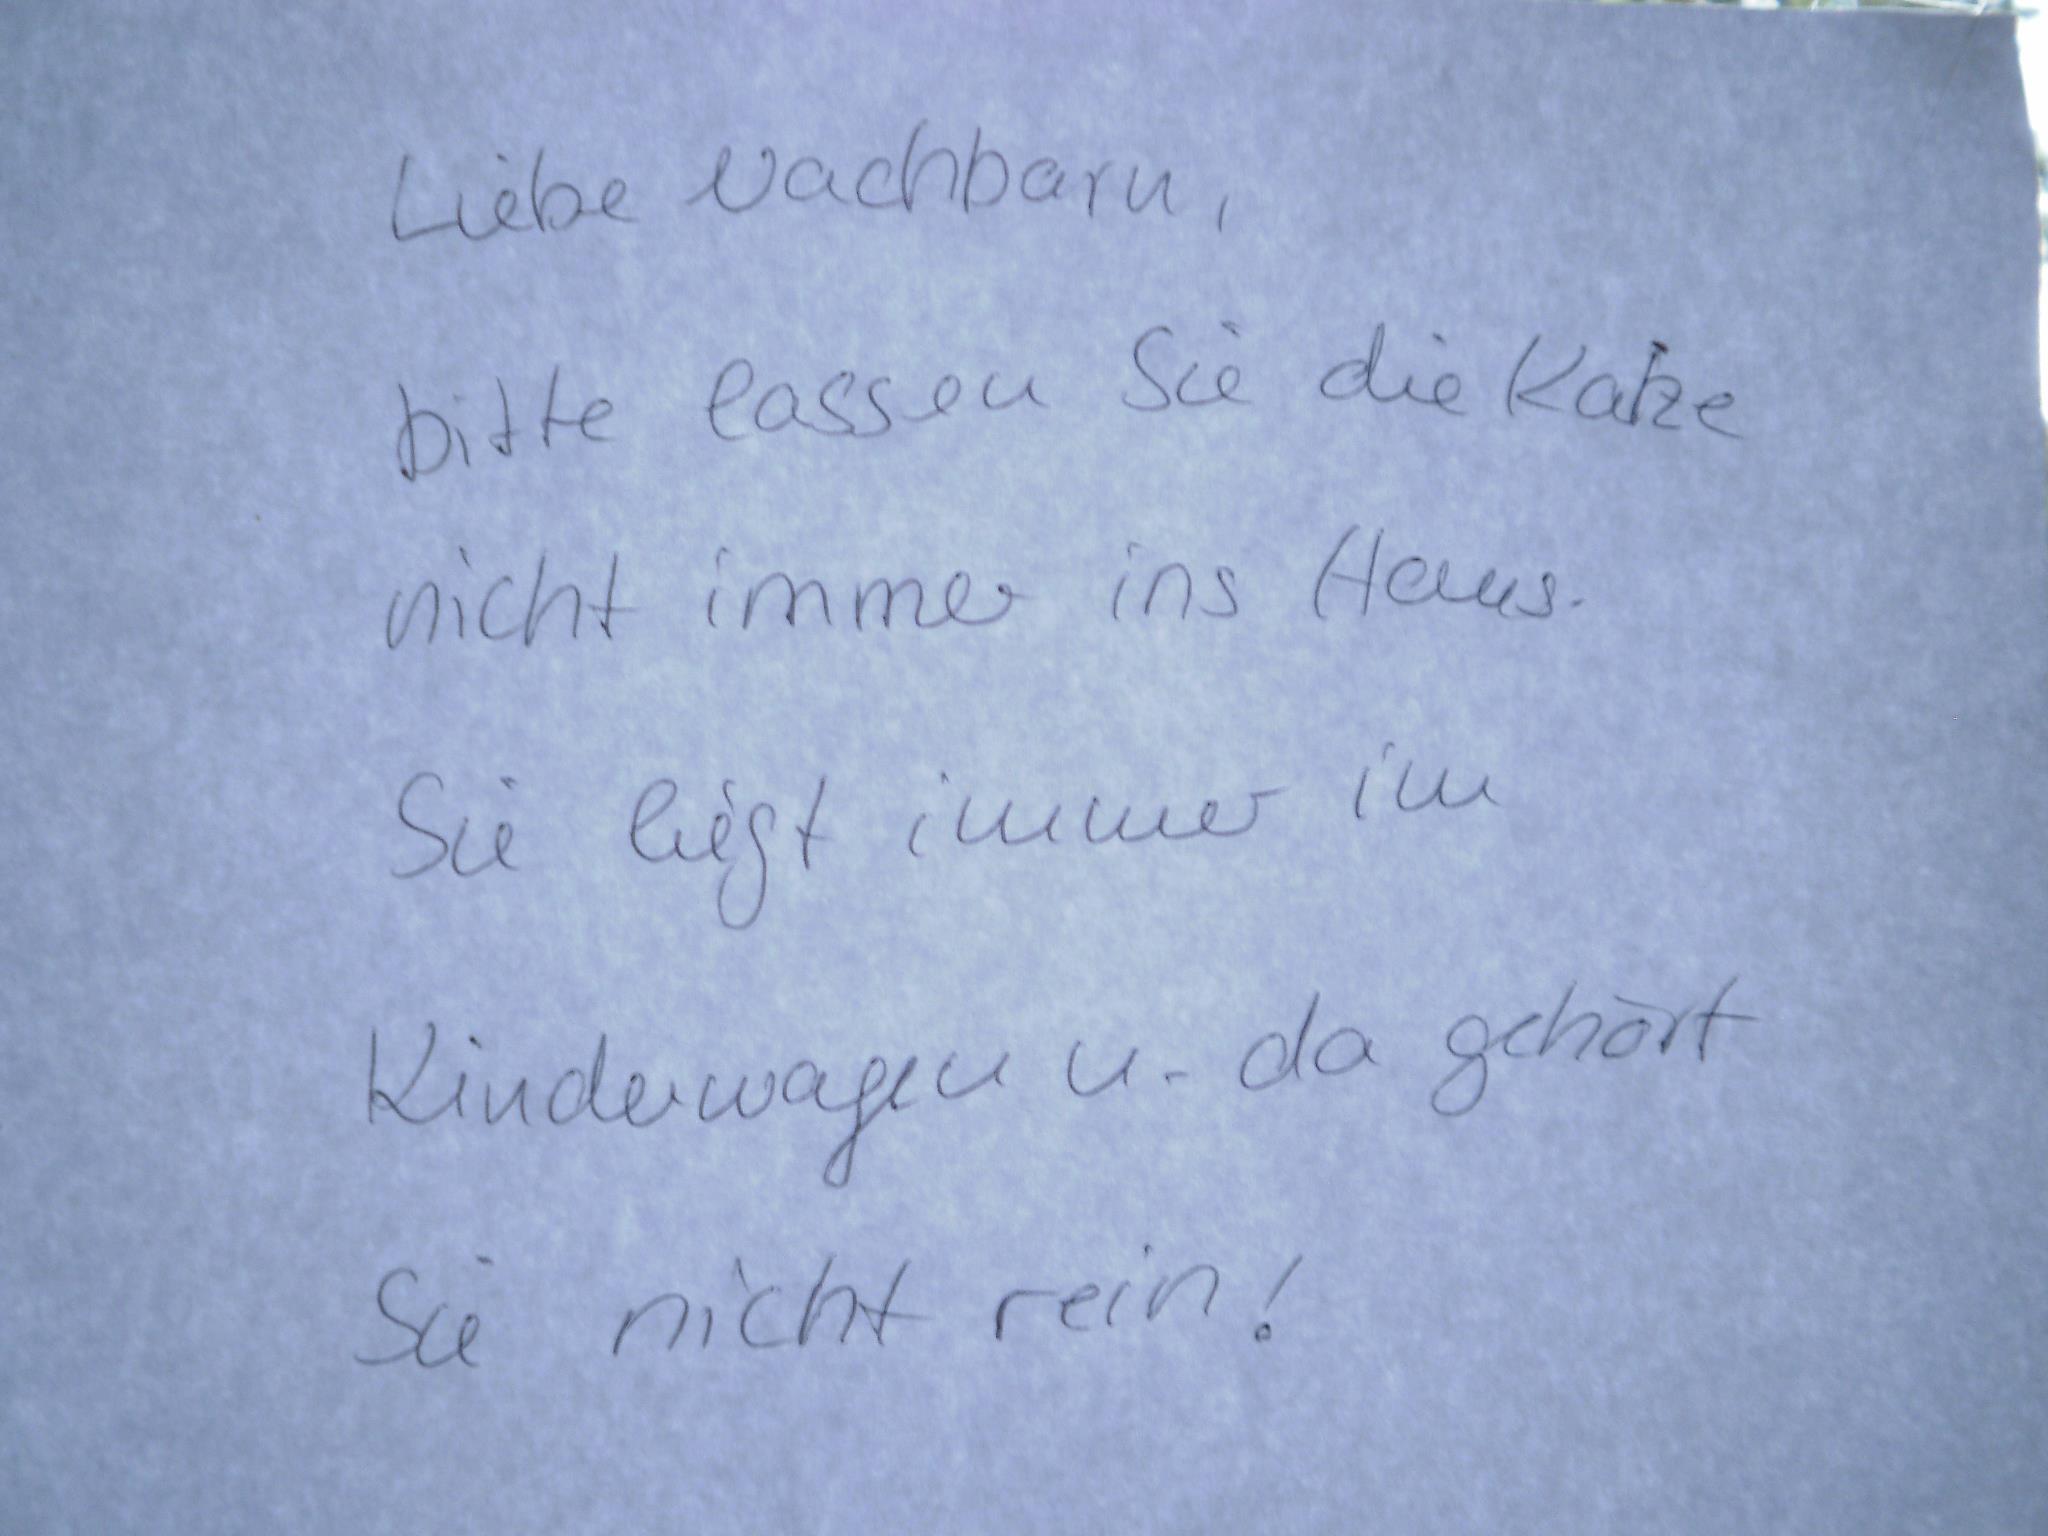 Liebe Nachbarn,
bitte lassen Sie die Katze
nicht immer ins Haus.
Sie liegt immer im
Kinderwagen u. da gehört
Sie nicht rein!